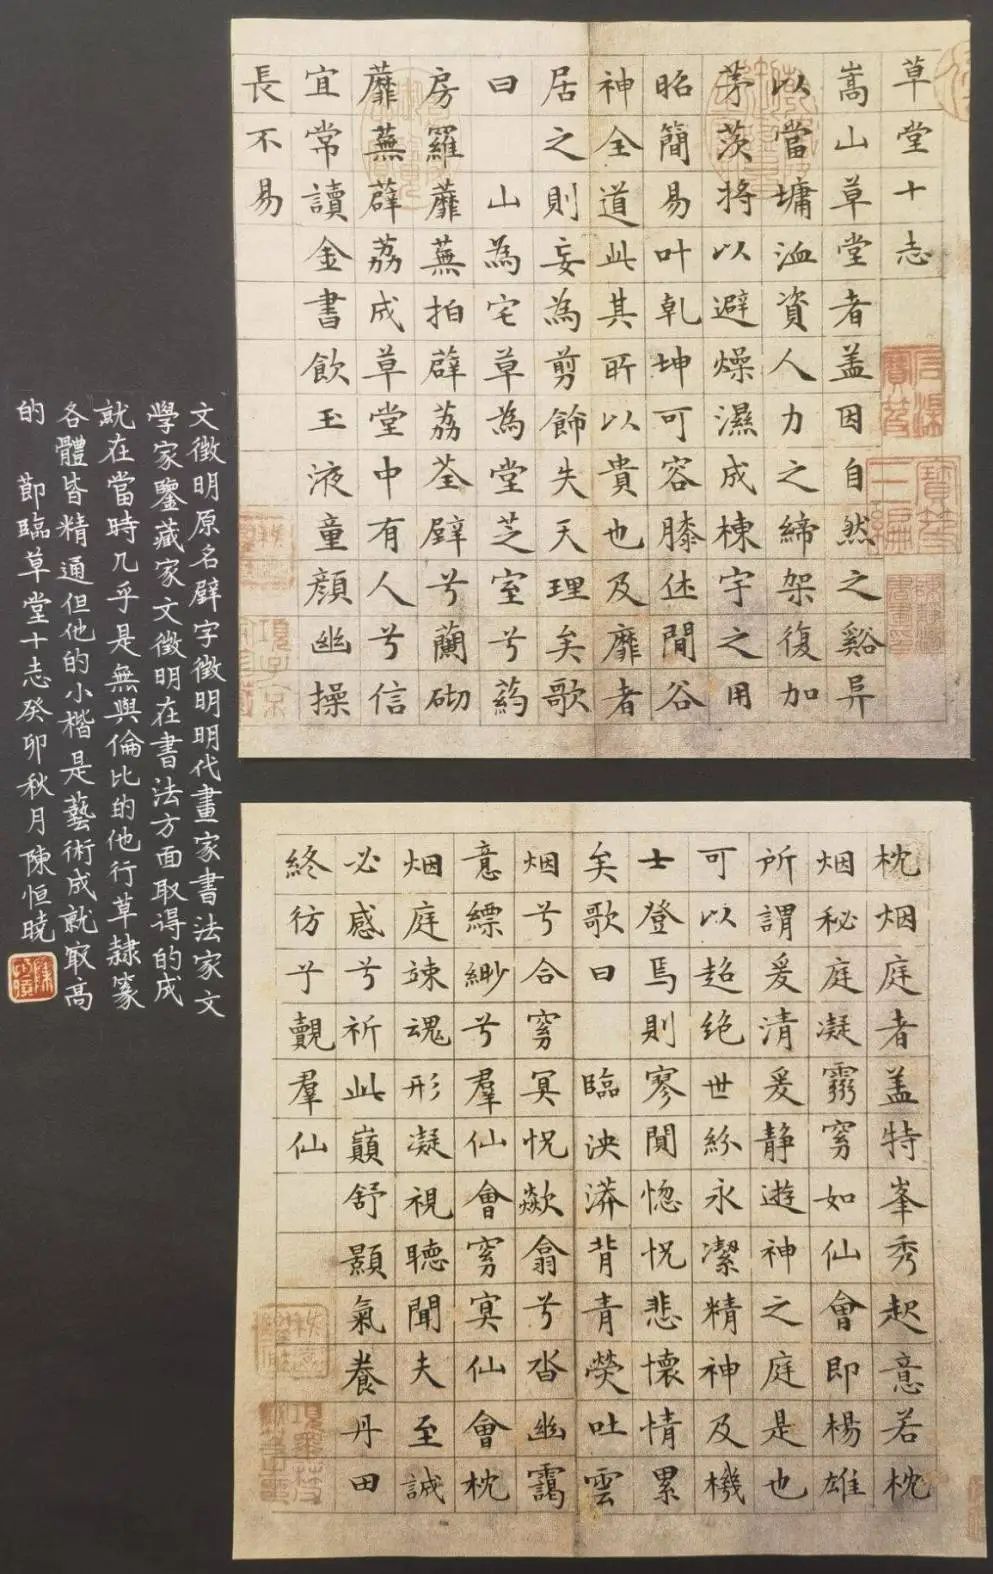 草堂十志
嵩山草堂者盖因自然之谿异
以當墉洫資人力之締架復加
茅茨將以避燥濕成棟宇之用
昭簡易叶乾坤可容膝閒谷
神全道此其所以貴也及靡者
居之則妄為剪飾失天理矣歌
曰 山為宅草為堂芝室兮葯
房羅蘼蕪拍薜荔荃壁兮蘭砌
蘼蕪薜荔成草堂中有人兮信
宜常讀金書飲玉液童顏幽操
長不易
枕烟庭者盖特峯秀起意若枕
烟秘庭凝窅如仙會即楊雄
所謂爰清爰静遊神之庭是也
可以超絶世紛永潔精神及機
士登焉則寥闃惚怳悲懷情累
矣歌曰 臨泱漭背青熒吐雲
烟兮合窅冥怳歘翕兮沓幽靄
意縹緲兮羣仙會窅冥仙會枕
烟庭竦魂形凝視聽聞夫至誠
必感兮祈此巔舒顥氣養丹田
終彷兮覿羣仙
文徵明原名壁字徵明明代畫家書法家文
學家鑒藏家文徵明在書法方面取得的成
就在當時几乎是無與倫比的他行草隸篆
各體皆精通但他的小楷是藝術成就最高
的 節臨草堂十志癸卯秋月陳恒晓